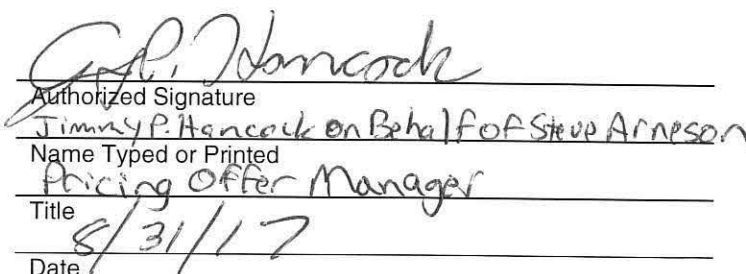 J.P. Hancock
Authorized Signature
Jimmy P. Hancock on Behalf of Steve Arneson
Name Typed or Printed
Pricing Offer Manager
Title
8/31/17
Date